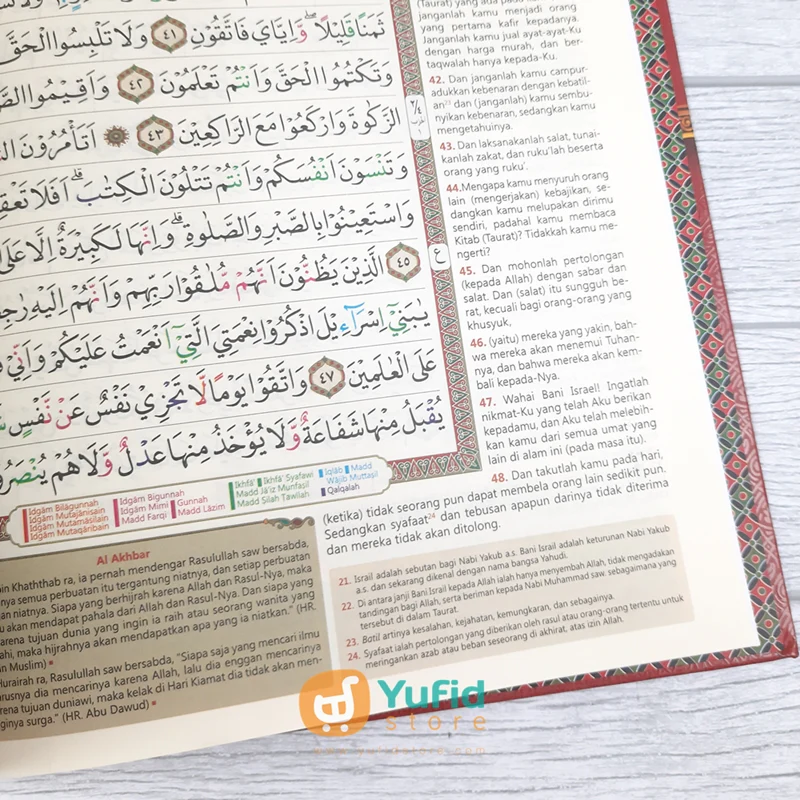 ثَمَنًا قَلِيْلًا ۖ وَّاِيَّايَ فَاتَّقُوْنِ ٤١ وَلَا تَلْبِسُوا الْحَقَّ
وَتَكْتُمُوا الْحَقَّ وَاَنْتُمْ تَعْلَمُوْنَ ٤٢ وَاَقِيْمُوا
الزَّكٰوةَ وَارْكَعُوْا مَعَ الرَّاكِعِيْنَ ٤٣ ۞ اَتَأْمُرُوْنَ
وَتَنْسَوْنَ اَنْفُسَكُمْ وَاَنْتُمْ تَتْلُوْنَ الْكِتٰبَ ۗ اَفَلَا
وَاسْتَعِيْنُوْا بِالصَّبْرِ وَالصَّلٰوةِ ۗ وَاِنَّهَا لَكَبِيْرَةٌ اِلَّا عَلَى
٤٥ الَّذِيْنَ يَظُنُّوْنَ اَنَّهُمْ مُّلٰقُوْا رَبِّهِمْ وَاَنَّهُمْ اِلَيْهِ
يٰبَنِيْٓ اِسْرَاۤءِيْلَ اذْكُرُوْا نِعْمَتِيَ الَّتِيْٓ اَنْعَمْتُ عَلَيْكُمْ وَاَنِّيْ
عَلَى الْعٰلَمِيْنَ ٤٧ وَاتَّقُوْا يَوْمًا لَّا تَجْزِيْ نَفْسٌ عَنْ نَّفْسٍ
يُقْبَلُ مِنْهَا شَفَاعَةٌ وَّلَا يُؤْخَذُ مِنْهَا عَدْلٌ وَّلَا هُمْ يُنْصَرُوْنَ
ع
janganlah kamu menjadi orang
yang pertama kafir kepadanya.
Janganlah kamu jual ayat-ayat-Ku
dengan harga murah, dan ber-
taqwalah hanya kepada-Ku.
42. Dan janganlah kamu campur-
adukkan kebenaran dengan kebatil-
an²³ dan (janganlah) kamu sembu-
nyikan kebenaran, sedangkan kamu
mengetahuinya.
43. Dan laksanakanlah salat, tunai-
kanlah zakat, dan ruku'lah beserta
orang yang ruku'.
44.Mengapa kamu menyuruh orang
lain (mengerjakan) kebajikan, se-
dangkan kamu melupakan dirimu
sendiri, padahal kamu membaca
Kitab (Taurat)? Tidakkah kamu me-
ngerti?
45. Dan mohonlah pertolongan
(kepada Allah) dengan sabar dan
salat. Dan (salat) itu sungguh be-
rat, kecuali bagi orang-orang yang
khusyuk,
46. (yaitu) mereka yang yakin, bah-
wa mereka akan menemui Tuhan-
nya, dan bahwa mereka akan kem-
bali kepada-Nya.
47. Wahai Bani Israel! Ingatlah
nikmat-Ku yang telah Aku berikan
kepadamu, dan Aku telah melebih-
kan kamu dari semua umat yang
lain di alam ini (pada masa itu).
48. Dan takutlah kamu pada hari,
(ketika) tidak seorang pun dapat membela orang lain sedikit pun.
Sedangkan syafaat²⁴ dan tebusan apapun darinya tidak diterima
dan mereka tidak akan ditolong.
Idgām Bilāgunnah
Idgām Mutajānisain
Idgām Mutamāsilain
Idgām Mutaqāribain
Idgām Bigunnah
Idgām Mimi Gunnah
Madd Farqi Madd Lāzim
Ikhfā' Ikhfā' Syafawi
Madd Jā'iz Munfasil
Madd Silah Tawilah
Iqlāb Madd
Wājib Muttasil
Qalqalah
Al Akhbar
Khaththab ra, ia pernah mendengar Rasulullah saw bersabda,
semua perbuatan itu tergantung niatnya, dan setiap perbuatan
niatnya. Siapa yang berhijrah karena Allah dan Rasul-Nya, maka
akan mendapat pahala dari Allah dan Rasul-Nya. Dan siapa yang
karena tujuan dunia yang ingin ia raih atau seorang wanita yang
maka hijrahnya akan mendapatkan apa yang ia niatkan." (HR.
Muslim)
Hurairah ra, Rasulullah saw bersabda, "Siapa saja yang mencari ilmu
dia mencarinya karena Allah, lalu dia enggan mencarinya
karena tujuan duniawi, maka kelak di Hari Kiamat dia tidak akan men-
surga." (HR. Abu Dawud)
21. Israil adalah sebutan bagi Nabi Yakub a.s. Bani Israil adalah keturunan Nabi Yakub
a.s. dan sekarang dikenal dengan nama bangsa Yahudi.
22. Di antara janji Bani Israel kepada Allah ialah hanya menyembah Allah, tidak mengadakan
tandingan bagi Allah, serta beriman kepada Nabi Muhammad saw. sebagaimana yang
tersebut di dalam Taurat.
23. Batil artinya kesalahan, kejahatan, kemungkaran, dan sebagainya.
24. Syafaat ialah pertolongan yang diberikan oleh rasul atau orang-orang tertentu untuk
meringankan azab atau beban seseorang di akhirat, atas izin Allah.
Yufid
store